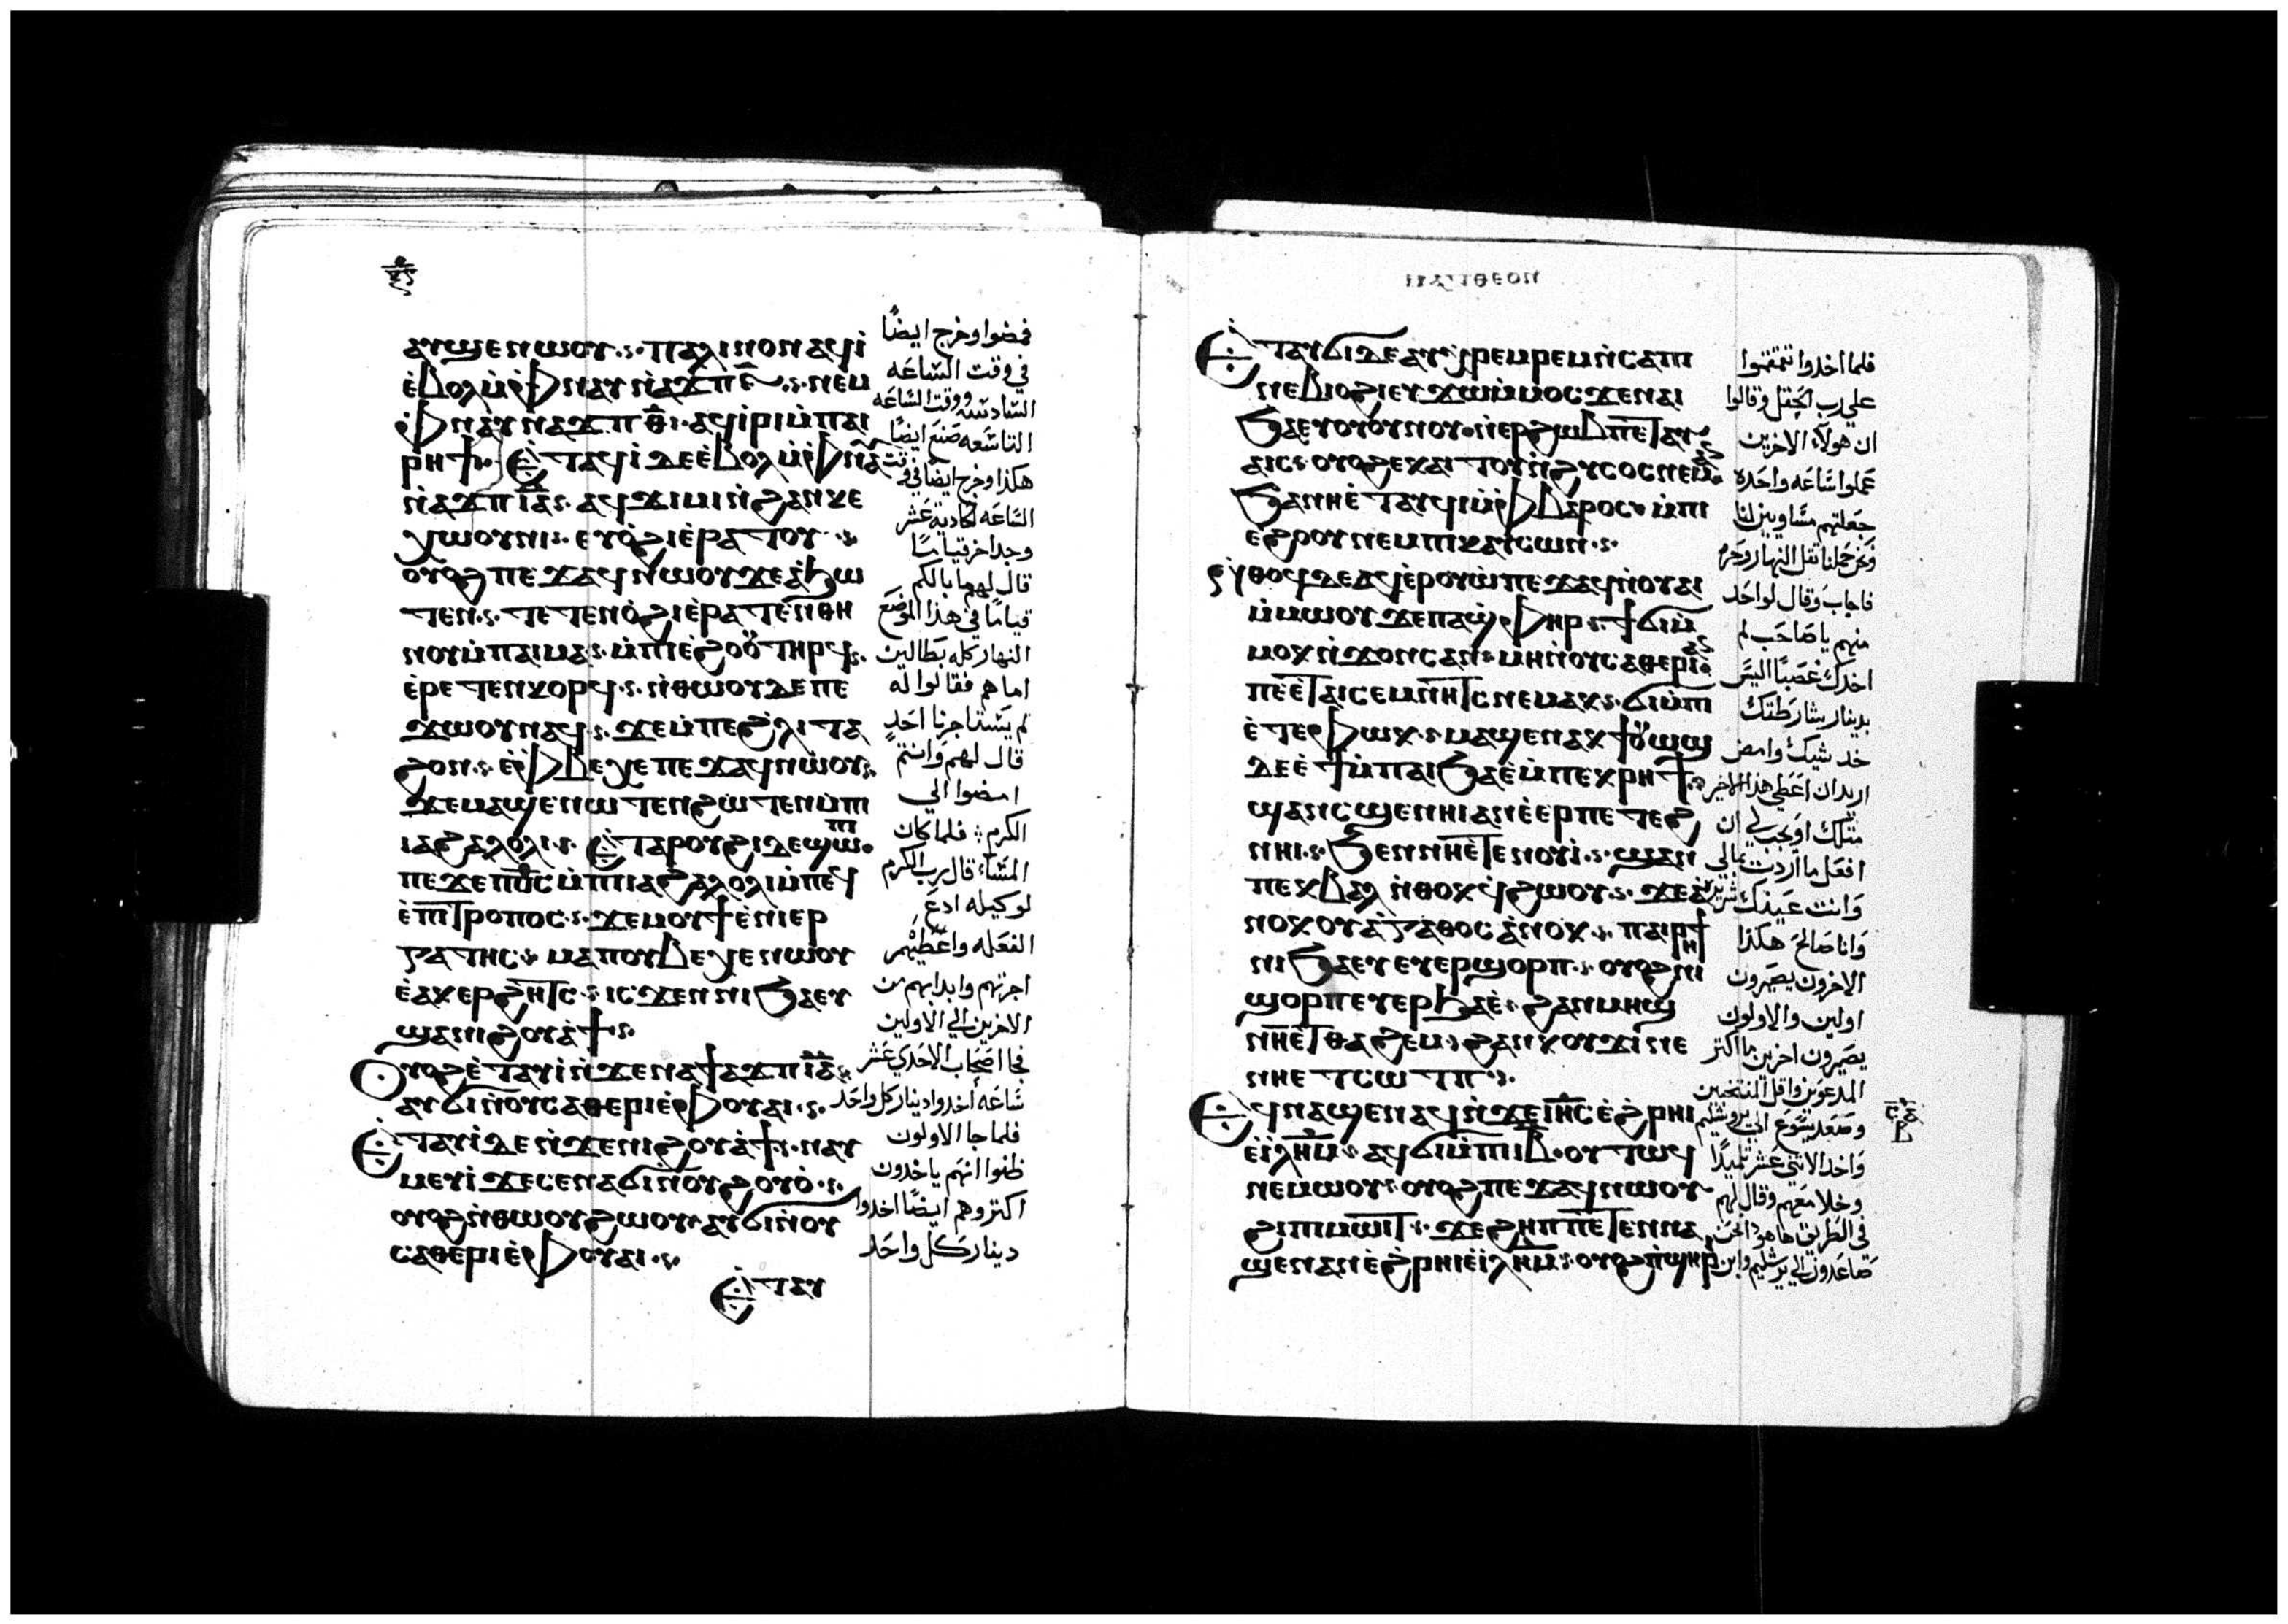 ⲁⲩϣⲉⲛⲱⲟⲩ ⲡⲁⲗⲓⲛⲟⲛ ⲁϥⲓ̀
ⲉ̀ⲃⲟⲗ ⲙ̀ⲫⲛⲁⲩ ⲛ̀ⲁϫⲡ ⲛⲉⲙ
ⲫⲛⲁⲩ ⲛⲁϫⲡ ⲑ̅ ⲁϥⲓⲣⲓ ⲙ̀ⲡⲁⲓ
ⲣⲏϯ Ⲉ̀ⲧⲁϥⲓ̀ ⲇⲉ ⲉ̀ⲃⲟⲗ ⲙ̀ⲫⲛⲁⲩ
ⲛ̀ⲁϫⲡ ⲓ̅ⲁ̅ ⲁϥϫⲓⲙⲓ ⲛ̀ϩⲁⲛⲕⲉ
ⲭⲱⲟⲩⲛⲓ ⲉⲩⲟ̀ϩⲓ ⲉ̀ⲣⲁⲧⲟⲩ
ⲟⲩⲟϩ ⲡⲉϫⲁϥ ⲛⲱⲟⲩ ϫⲉ ⲁ̀ϧⲱ
ⲧⲉⲛ ⲧⲉⲧⲉⲛⲟ̀ϩⲓ ⲉ̀ⲣⲁⲧⲉⲛⲑⲏ
ⲛⲟⲩ ⲙ̀ⲡⲁⲓⲙⲁ ⲙ̀ⲡⲓⲉ̀ϩⲟⲟⲩ ⲧⲏⲣϥ
ⲉ̀ⲣⲉⲧⲉⲛⲕⲟⲣϥ ⲛ̀ⲑⲱⲟⲩ ⲇⲉ ⲡⲉ
ϫⲱⲟⲩ ⲛⲁϥ ϫⲉ ⲙ̀ⲡⲉϩ̀ⲗⲓ ⲧⲁ
ϩⲟⲛ ⲉ̀ⲫⲃⲉⲭⲉ ⲡⲉϫⲁϥ ⲛⲱⲟⲩ
ϫⲉ ⲙⲁϣⲉⲛⲱⲧⲉⲛ ϩⲱⲧⲉⲛ ⲙ̀ⲡⲓ
ⲓⲁϩⲁⲗⲟⲗⲓ Ⲉ̀ⲧⲁⲣⲟⲩϩⲓ ⲇⲉ ϣⲱⲡⲓ
ⲡⲉϫⲉ ⲡⲟ̅ⲥ̅ ⲙ̀ⲡⲓⲁϩⲁⲗⲟⲗⲓ ⲙ̀ⲡⲉϥ
ⲉ̀ⲡⲓⲧⲣⲟⲡⲟⲥ ϫⲉ ⲙⲟⲩϯ ⲉ̀ⲛⲓⲉⲣ
ⲅⲁⲧⲏⲥ ⲙⲁ ⲡⲟⲩⲃⲉⲭⲉ ⲛⲱⲟⲩ
ⲉ̀ⲁⲕⲉⲣϩⲏⲧⲥ ⲓⲥϫⲉⲛ ⲛⲓϧⲁⲉⲩ
ϣⲁ ⲛⲓϩⲟⲩⲁ̀ϯ
Ⲟⲩⲟϩ ⲉ̀ⲧⲁⲩⲓ̀ ⲛ̀ϫⲉ ⲛⲁϯⲁϫⲡ ⲓ̅ⲁ̅
ⲁⲩϭⲓ ⲛ̀ⲟⲩⲥⲁⲑⲉⲣⲓ ⲉ̀ⲫⲟⲩⲁⲓ
Ⲉ̀ⲧⲁⲩⲓ̀ ⲇⲉ ⲛ̀ϫⲉ ⲛⲓϩⲟⲩⲁ̀ϯ ⲛⲁⲩ
ⲙⲉⲩⲓ̀ ϫⲉ ⲥⲉⲛⲁϭⲓ ⲛ̀ⲟⲩϩⲟⲩⲟ̀
ⲟⲩⲟϩ ⲛ̀ⲑⲱⲟⲩ ϩⲱⲟⲩ ⲁⲩϭⲓ ⲛ̀ⲟⲩ
ⲥⲁⲑⲉⲣⲓ ⲉ̀ⲫⲟⲩⲁⲓ
Ⲉ̀ⲧⲁⲩ
فمضوا وخرج ايضًا
في وقت السَاعَه
السَادسَه ووقت السَاعَه
التاسَعه صَنعَ ايضًا
هكذا وخرج ايضًا في وقت
السَاعَه الحادية عَشر
وجد اخر قيامًا
قال لهم ما بالكم
قيامًا في هذا الموضَع
النهار كله بَطالين
اما هم فقالوا له
لم يَستاجرنا احَد
قال لهم وَانتم
امضوا الي
الكرم فلما كان
المسَاء قال رب الكرم
لوكيله ادعَ
الفعَله واعَطيهْم
اجرتهم وابدا بهم من
الاخرين الي الاولين
فجا اصحَاب الاحَدي عَشر
سَاعَه أخدوا دينار كل واحَد
فلما جا الاولون
ظنوا انهَم ياخدون
اكتر وهم ايضًا اخدوا
دينار كل واحَد
ⲙⲁⲧⲑⲉⲟⲛ
Ⲉ̀ⲧⲁⲩϭⲓ ⲇⲉ ⲁⲩⲭⲣⲉⲙⲣⲉⲙ ⲛ̀ⲥⲁ ⲡⲓ
ⲛⲉⲃⲓⲟϩⲓ ⲉⲩϫⲱ ⲙ̀ⲙⲟⲥ ϫⲉ ⲛⲁⲓ
ϧⲁⲉⲩ ⲟⲩⲟⲩⲛⲟⲩ ⲛ̀ⲉⲣϩⲱⲃ ⲡⲉⲧⲁⲩ
ⲁⲓⲥ ⲟⲩⲟϩ ⲉⲕⲁⲓⲧⲟⲩ ⲛ̀ϩⲩⲥⲟⲥ ⲛⲉⲙⲁⲛ
ϧⲁ ⲛⲏⲉ̀ⲧⲁⲩϥⲓ ⲙ̀ⲫⲃⲁⲣⲟⲥ ⲙ̀ⲡⲓ
ⲉϩⲟⲟⲩ ⲛⲉⲙ ⲡⲓⲕⲁⲩⲥⲱⲛ
ⲛ̀ⲑⲟϥ ⲇⲉ ⲁϥⲉ̀ⲣⲟⲩⲱ̀ ⲡⲉϫⲁϥ ⲛ̀ⲟⲩⲁⲓ
ⲙ̀ⲙⲱⲟⲩ ϫⲉ ⲡⲁϣⲫⲏⲣ ϯϭⲓ ⲙ̀
ⲙⲟⲕ ⲛ̀ϫⲟⲛⲥ ⲁⲛ ⲙⲏ ⲛ̀ⲟⲩⲥⲁⲑⲉⲣⲓ ⲁⲛ
ⲡⲉ ⲉ̀ⲧⲁⲓⲥⲉⲙⲛⲏⲧⲥ ⲛⲉⲙⲁⲕ ϭⲓ ⲙ̀ⲡⲓ
ⲉ̀ⲧⲉⲫⲱⲕ ⲙⲁϣⲉⲛⲁⲕ ϯⲟⲩⲱϣ
ⲇⲉ ⲉ̀ϯ ⲙ̀ⲡⲁⲓϧⲁⲉ̀ ⲙ̀ⲡⲉⲕⲣⲏϯ
ϣⲁⲛ ⲥϣⲉ ⲛⲏⲓ ⲁⲛ ⲉ̀ⲉⲣ ⲡⲉⲧⲉϩ
ⲛⲏⲓ ϧⲉⲛ ⲛⲏⲉ̀ⲧⲉⲛⲟⲩⲓ̀ ϣⲁⲛ
ⲡⲉⲕⲃⲁⲗ ⲛ̀ⲑⲟⲕ ϥϩⲱⲟⲩ ϫⲉ ⲁ̀
ⲛⲟⲕ ⲟⲩⲁ̀ⲅⲁⲑⲟⲥ ⲁ̀ⲛⲟⲕ ⲡⲁⲓⲣⲏϯ
ⲛⲓϧⲁⲉⲩ ⲉⲩⲉⲣϣⲟⲣⲡ ⲟⲩⲟϩ ⲛⲓ
ϣⲟⲣⲡ ⲉⲩⲉⲣϧⲁⲉ̀ ϩⲁⲛⲙⲏϣ
ⲛⲏⲉ̀ⲧⲑⲁϩⲉⲙ ϩⲁⲛⲕⲟⲩϫⲓ ⲛⲉ
ⲛⲏⲉⲧⲥⲱⲧⲡ
Ⲉϥⲛⲁϣⲉⲛⲁϥ ⲛ̀ϫⲉ ⲓⲏ̅ⲥ̅ ⲉ̀ϩ̀ⲣⲏⲓ
ⲉ̀ⲓ̀ⲗⲏ̅ⲙ̅ ⲁϥϭⲓ ⲙ̀ⲡⲓⲓ̅ⲃ̅ ⲟⲩⲧⲱϥ
ⲛⲉⲙⲱⲟⲩ ⲟⲩⲟϩ ⲡⲉϫⲁϥ ⲛⲱⲟⲩ
ϩⲓ ⲡⲓⲙⲱⲓⲧ ϫⲉ ϩⲏⲡⲡⲉ ⲧⲉⲛⲛⲁ
ϣⲉⲛⲁⲛ ⲉ̀ϩ̀ⲣⲏⲓ ⲉ̀ⲓ̀ⲗⲏ̅ⲙ̅ ⲟⲩⲟϩ ⲡ̀ϣⲏⲣⲓ
فلما اخدوا تقمقموا
علي رب الحَقل وقالوا
ان هولآء الاخرين
عَملوا سَاعَه واحَده
جعَلتهم مسَاويين لنا
وَنحَن حَملنا تقل النهار وحَره
فاجابَ وقال لواحَد
منهم يا صَاحَب لم
اخدك غصَبًا اليسَ
بدينار شارَطتك
خد شيك وامض
اريد ان اعَطي هذا الاخير
متلك او يجب لي ان
افعَل ما اردت بمالي
وَانت عَينك شريره
وَانا صَالحَ هكذا
الاخرون يصَيرون
اولين والاولون
يصَيرون اخرين ما اكتر
المدعوَين واقل المنتخبين
وصَعَد يسَوعَ الي يروشليم
وَاخد الاتني عَشر تلميدًا
وخلا معَهم وقال لهم
في الطَريق ها هودا نحَن
صَاعَدون الي يرشليم وابن